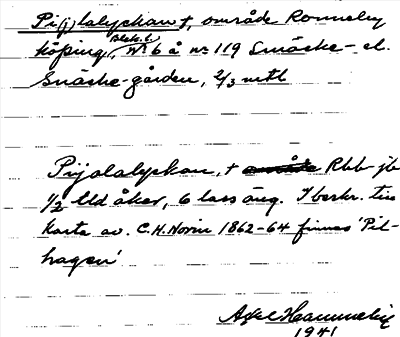 Pi(j)lalyckan †, område Ronneby
köping, Blek. l.
№ 6 å nr 119 Snäcke- el.
Snäcke-gården, 2/3 mtl
Pijolalyckan, † område Rbb jb
1/2 tld åker, 6 lass äng. I beskr. till
karta av C.H. Norin 1862-64 finnes 'Pil-
hagen'
Axel
1941